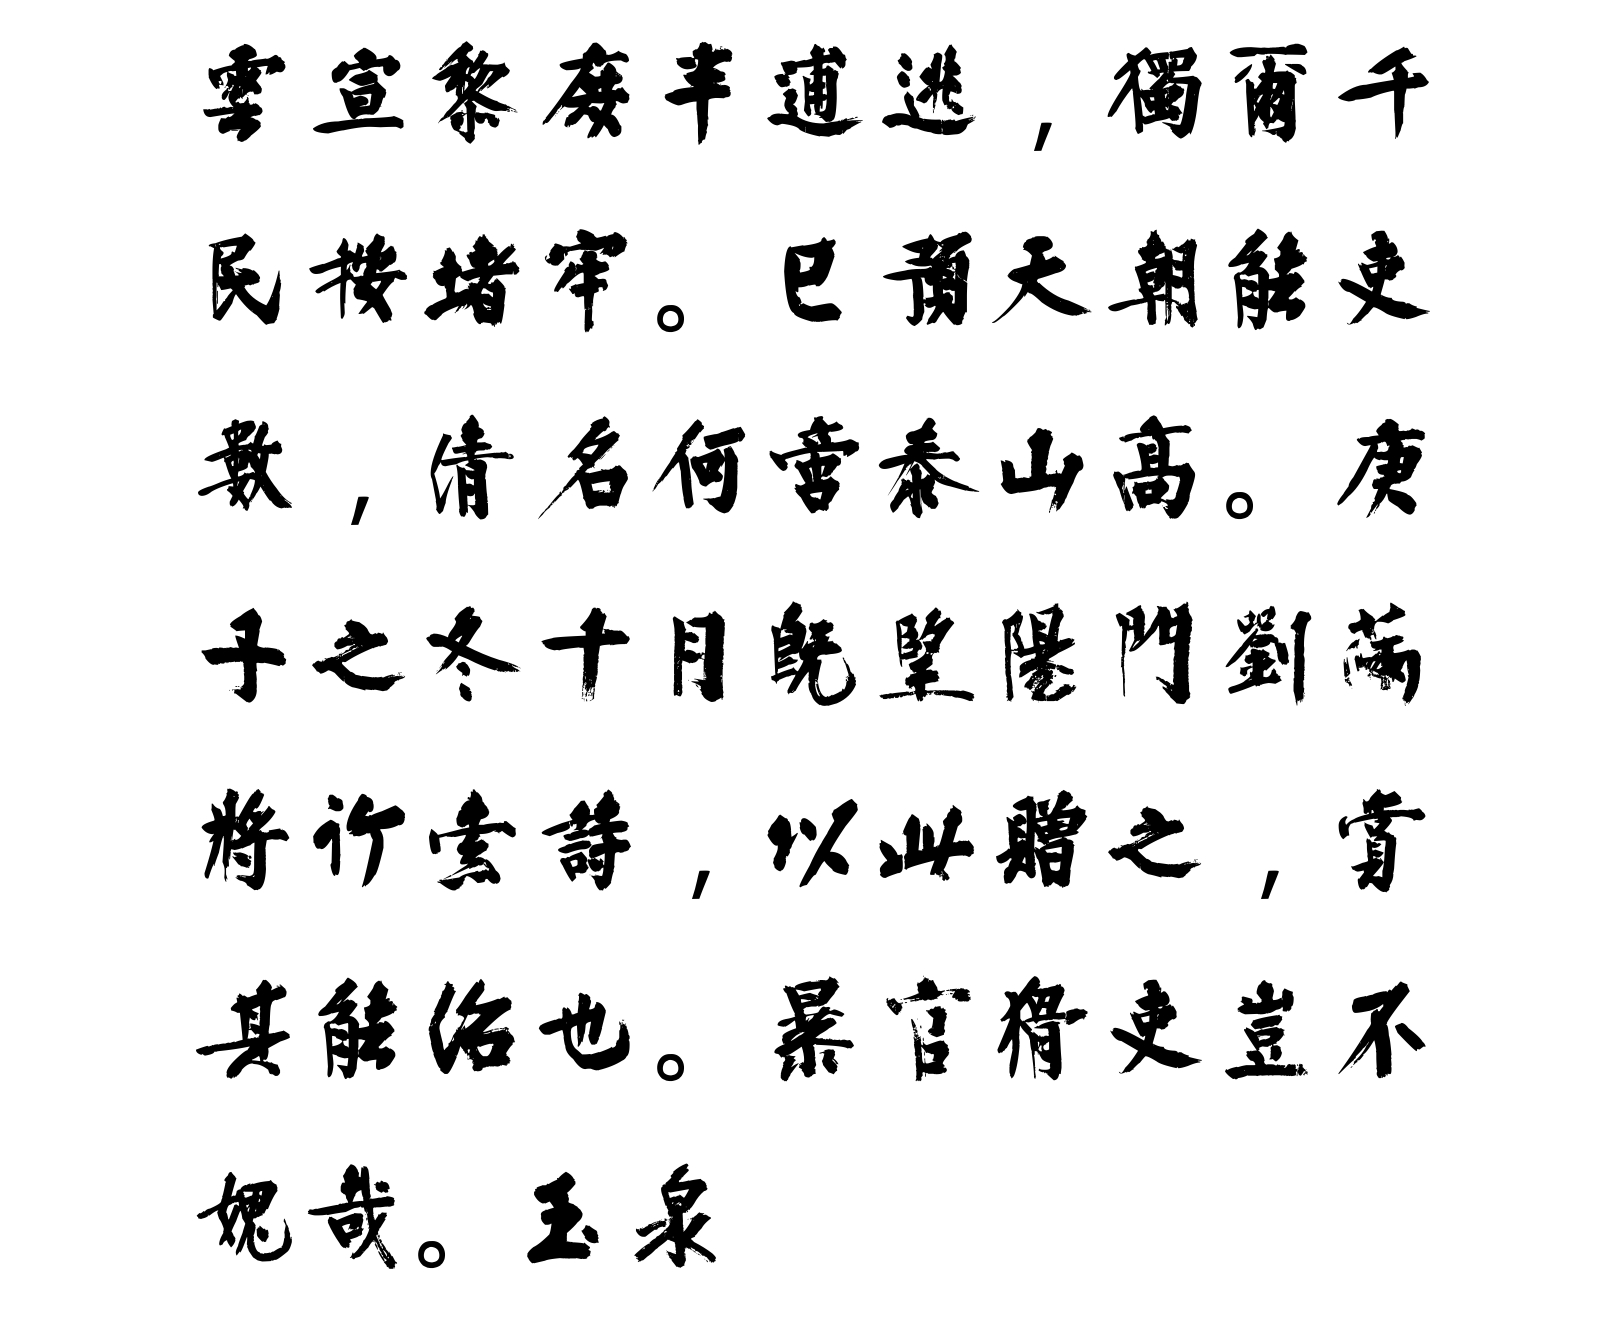 雲宣黎庶半逋逃，獨爾千
民按堵牢。巳預天朝能吏
數，清名何啻泰山高。庚
子之冬十月既望陽門劉薷
將行索詩，以此贈之，賞
其能治也。暴官猾吏豈不
媿哉。玉泉